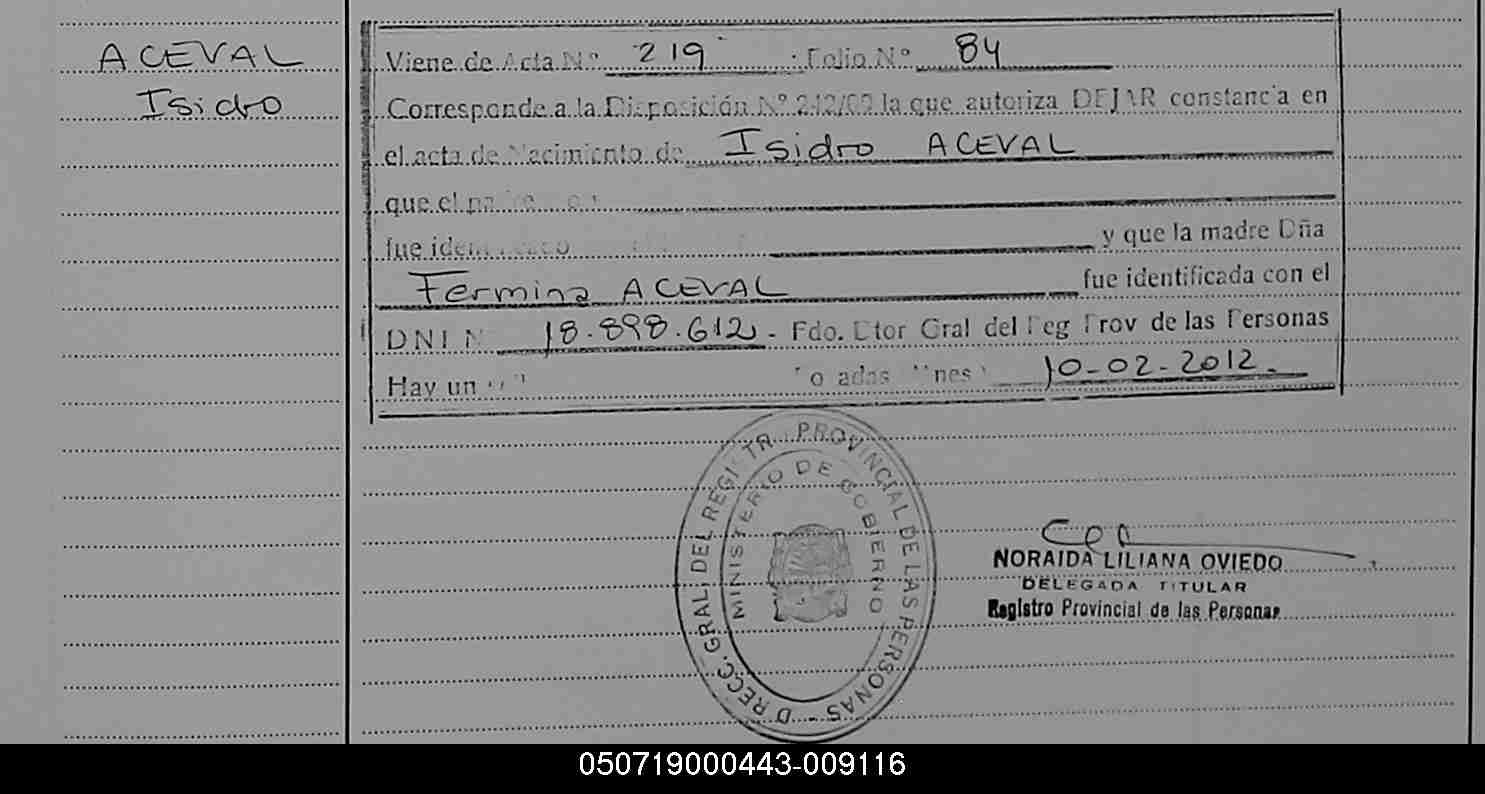 ACEVAL
Isidro
Viene de Acta Nº 219 Folio Nº 84
Corresponde a la Disposición Nº 242/09 la que autoriza DEJAR constancia en
el acta de Nacimiento de Isidro ACEVAL
que el
fue y que la madre Dña
Fermina ACEVAL fue identificada con el
DNI N 18.898.612 - Fdo. Dtor Gral del Reg Prov de las Personas
Hay un 10-02-2012.
DIRECC. GRAL. DEL REGISTRO PROVINCIAL DE LAS PERSONAS -
MINISTERIO DE GOBIERNO
NORAIDA LILIANA OVIEDO
DELEGADA TITULAR
Registro Provincial de las Personas
050719000443-009116